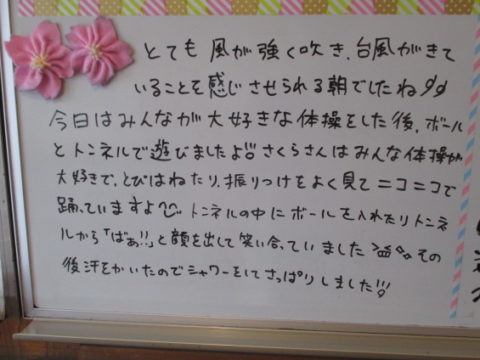 とても風が強く吹き、台風がきて
いることを感じさせられる朝でしたね!!
今日はみんなが大好きな体操をした後、ボール
とトンネルで遊びましたよ!! さくらさんはみんな体操が
大好きで、とびはねたり、振りつけをよく見てニコニコで
踊っていますよ トンネルの中にボールを入れたりトンネ
ルから「ばぁ!!」と顔を出して笑い合っていました その
後汗をかいたのでシャワーをしてさっぱりしました!!!